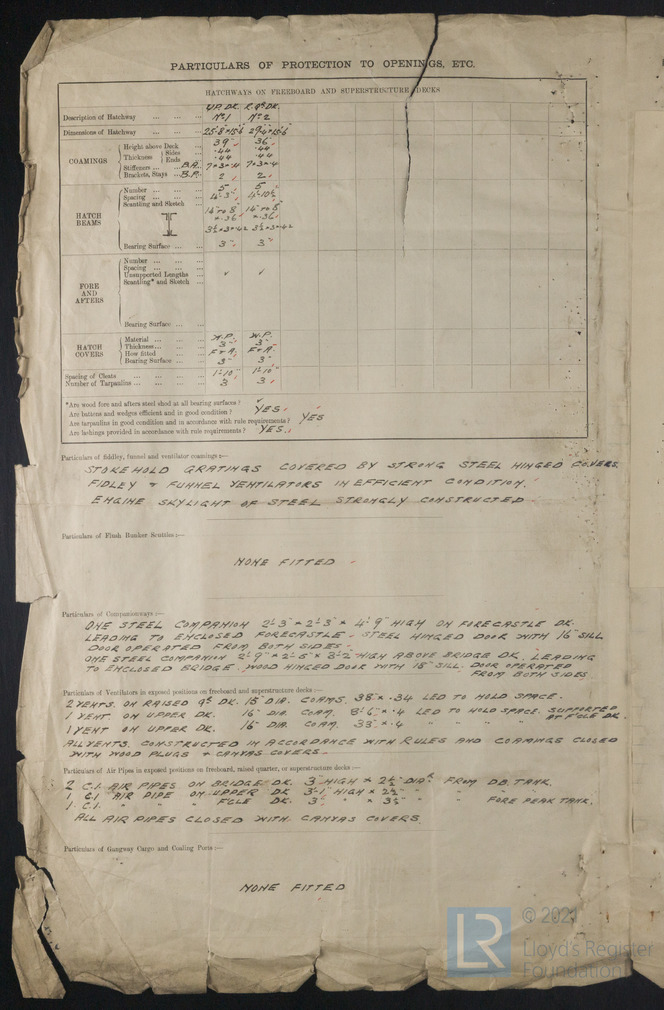 PARTICULARS OF PROTECTION TO OPENINGS, ETC.
HATCHWAYS ON FREEBOARD AND SUPERSTRUCTURE DECKS
UP. DK. R. QR. DK.
Description of Hatchway ... ... ... No 1 No 2
Dimensions of Hatchway ... ... ... 25'-8" × 15'6 29'-4 × 15'6
COAMINGS
Height above Deck ... 39" 36"
Thickness Sides ... .44 .44
Ends ... .44 .44
Stiffeners ... ... B.A. 7×3×.4 7×3×.4
Brackets, Stays ... B.P. 2 2
HATCH BEAMS
Number ... ... ... 5 5
Spacing ... ... ... 4'-3" 4'-10½"
Scantling and Sketch ...
14" TO 8" 14" TO 8"
×.36 ×.36
3½×3×.42 3½×3×.42
Bearing Surface ... ... 3" 3"
FORE AND AFTERS
Number ... ... ...
Spacing ... ... ...
Unsupported Lengths ... ✓ ✓
Scantling* and Sketch ...
Bearing Surface ... ...
HATCH COVERS
Material ... ... ... W.P. W.P.
Thickness ... ... ... 3" 3"
How fitted ... ... F & A. F & A.
Bearing Surface ... ... 3" 3"
Spacing of Cleats ... ... ... 1'-10" 1'-10"
Number of Tarpaulins ... ... ... 3 3
*Are wood fore and afters steel shod at all bearing surfaces? ✓
Are battens and wedges efficient and in good condition? YES.
Are tarpaulins in good condition and in accordance with rule requirements? YES
Are lashings provided in accordance with rule requirements? YES.
Particulars of fiddley, funnel and ventilator coamings :—
STOKEHOLD GRATINGS COVERED BY STRONG STEEL HINGED COVERS.
FIDLEY & FUNNEL VENTILATORS IN EFFICIENT CONDITION.
ENGINE SKYLIGHT OF STEEL STRONGLY CONSTRUCTED
Particulars of Flush Bunker Scuttles :—
NONE FITTED
Particulars of Companionways :—
ONE STEEL COMPANION 2'-3" × 2'-3" × 4'-9" HIGH ON FORECASTLE DK.
LEADING TO ENCLOSED FORECASTLE. STEEL HINGED DOOR WITH 16" SILL
DOOR OPERATED FROM BOTH SIDES.
ONE STEEL COMPANION 2'-9" × 2'-5" × 8'-2" HIGH ABOVE BRIDGE DK. LEADING
TO ENCLOSED BRIDGE. WOOD HINGED DOOR WITH 15" SILL. DOOR OPERATED
FROM BOTH SIDES
Particulars of Ventilators in exposed positions on freeboard and superstructure decks :—
2 VENTS. ON RAISED QR. DK. 15" DIA. COAMS. 38" × .34 LED TO HOLD SPACE.
1 VENT ON UPPER DK. 16" DIA. COAM. 8'-6" × .4 LED TO HOLD SPACE. SUPPORTED AT F'CLE DK.
1 VENT ON UPPER DK. 16" DIA. COAM 38" × .4 " " "
ALL VENTS. CONSTRUCTED IN ACCORDANCE WITH RULES AND COAMINGS CLOSED
WITH WOOD PLUGS & CANVAS COVERS.
Particulars of Air Pipes in exposed positions on freeboard, raised quarter, or superstructure decks :—
2 C.I. AIR PIPES ON BRIDGE DK. 3" HIGH × 2½" DIAR. FROM D.B. TANK.
1 C.I. AIR PIPE ON UPPER DK 3'-1" HIGH × 2½" " " " "
1 C.I. " " " F'CLE DK. 3" " × 3½" " " FORE PEAK TANK.
ALL AIR PIPES CLOSED WITH CANVAS COVERS
Particulars of Gangway Cargo and Coaling Ports :—
NONE FITTED
LR
© 2021
Lloyd's Register
Foundation